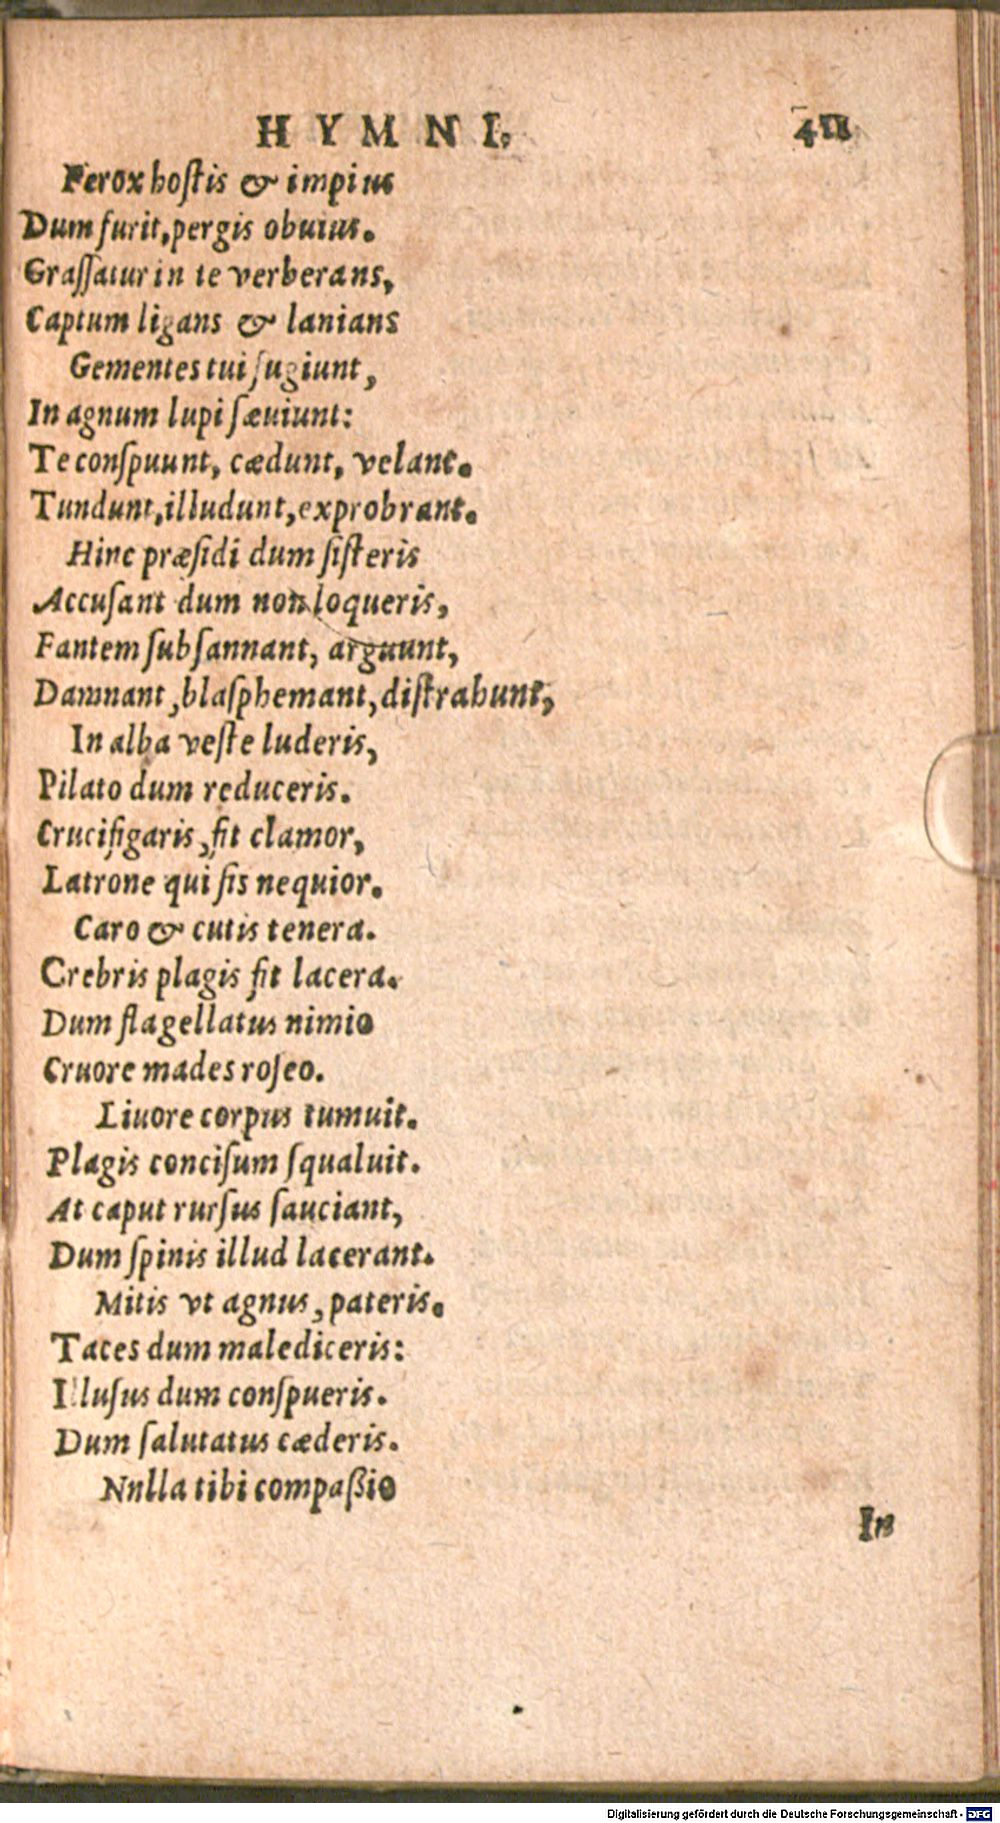 HYMNI. 411
Ferox hostis & impius
Dum furit, pergis obuius.
Grassatur in te verberans,
Captum ligans & lanians
Gementes tui fugiunt,
In agnum lupi sæuiunt:
Te conspuunt, cædunt, velant.
Tundunt, illudunt, exprobrant.
Hinc præsidi dum sisteris
Accusant dum non loqueris,
Fantem subsannant, arguunt,
Damnant, blasphemant, distrahunt,
In alba veste luderis,
Pilato dum reduceris.
Crucifigaris, fit clamor,
Latrone qui sis nequior.
Caro & cutis tenera.
Crebris plagis fit lacera.
Dum flagellatus nimio
Cruore mades roseo.
Liuore corpus tumuit.
Plagis concisum squaluit.
At caput rursus sauciant,
Dum spinis illud lacerant.
Mitis vt agnus, pateris.
Taces dum malediceris:
Illusus dum conspueris.
Dum salutatus cæderis.
Nulla tibi compaßio
In
Digitalisierung gefördert durch die Deutsche Forschungsgemeinschaft - DFG